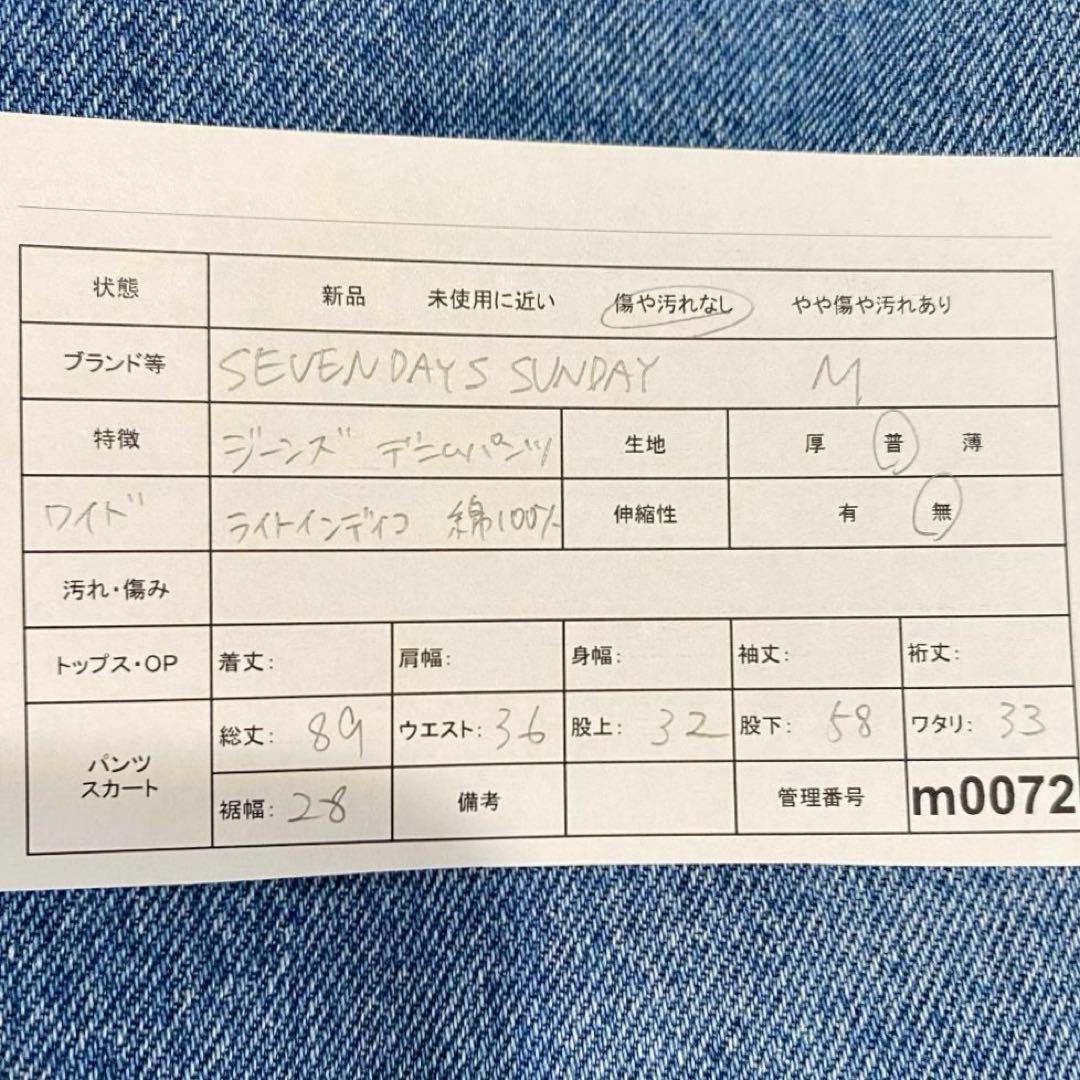 状態 新品 未使用に近い 傷や汚れなし やや傷や汚れあり
ブランド等 SEVENDAYS SUNDAY M
特徴 ジーンズ デニムパンツ 生地 厚 普 薄
ワイド ライトインディゴ 綿100% 伸縮性 有 無
汚れ・傷み
トップス・OP 着丈: 肩幅: 身幅: 袖丈: 裄丈:
パンツ スカート 総丈: 89 ウエスト: 36 股上: 32 股下: 58 ワタリ: 33
裾幅: 28 備考 管理番号 m0072